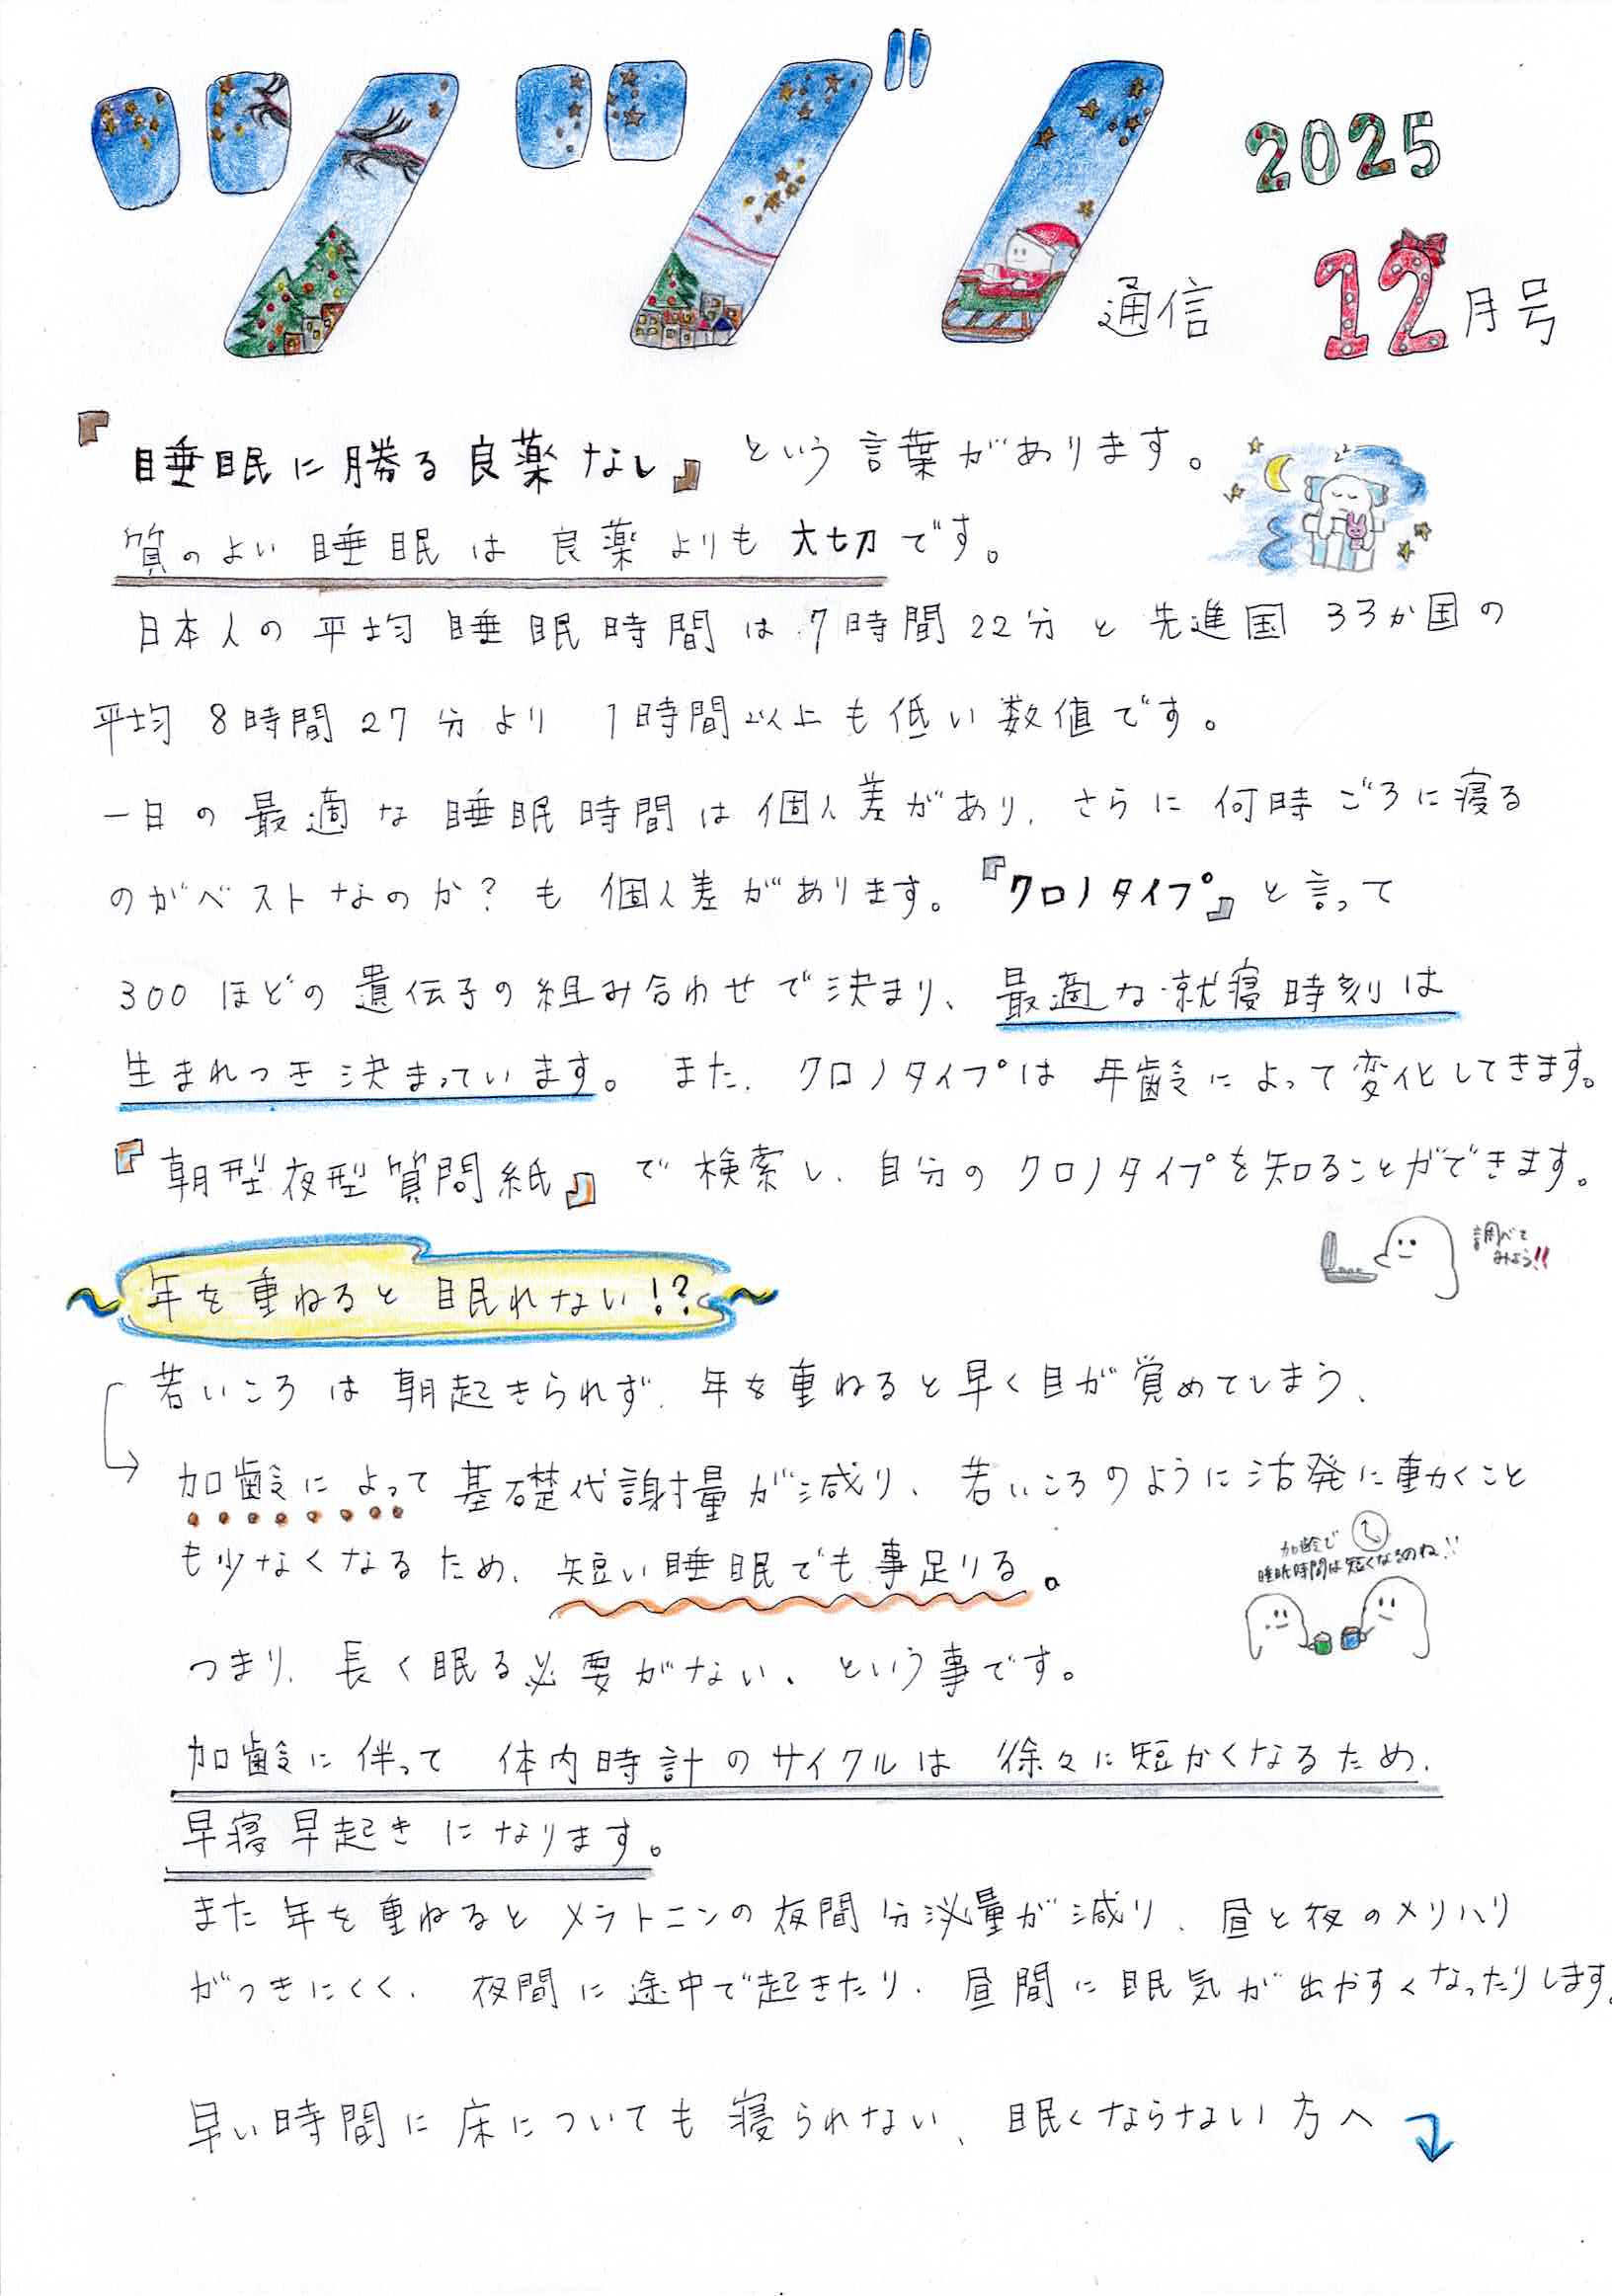 ツヅジ通信 2025 12月号
『睡眠に勝る良薬なし』という言葉があります。
質のよい睡眠は良薬よりも大切です。
日本人の平均睡眠時間は7時間22分と先進国33か国の
平均8時間27分より1時間以上も低い数値です。
一日の最適な睡眠時間は個人差があり、さらに何時ごろに寝る
のがベストなのか?も個人差があります。『クロノタイプ』と言って
300ほどの遺伝子の組み合わせで決まり、最適な就寝時刻は
生まれつき決まっています。また、クロノタイプは年齢によって変化してきます。
『朝型夜型質問紙』で検索し、自分のクロノタイプを知ることができます。
調べて
みよう!!
年を重ねると眠れない!?
若いころは朝起きられず、年を重ねると早く目が覚めてしまう、
→加齢によって基礎代謝量が減り、若いころのように活発に動くこと
も少なくなるため、短い睡眠でも事足りる。
加齢で
睡眠時間は短くなるのね!!
つまり、長く眠る必要がない、という事です。
加齢に伴って体内時計のサイクルは徐々に短かくなるため、
早寝早起きになります。
また年を重ねるとメラトニンの夜間分泌量が減り、昼と夜のメリハリ
がつきにくく、夜間に途中で起きたり、昼間に眠気が出やすくなったりします。
早い時間に床についても寝られない、眠くならない方へ